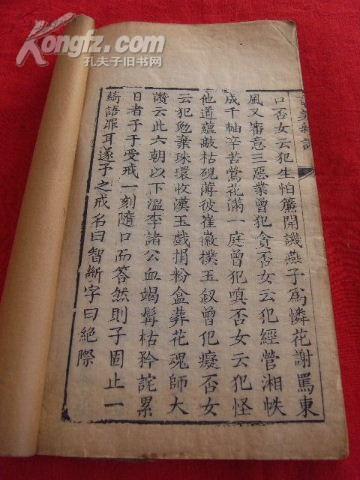 Kongfz.com
孔夫子旧书网
口否女云犯生怕簾開譏燕子爲憐花謝罵東
風又審意三惡業曾犯貪否女云犯經營湘帙
成千軸辛苦鶯花滿一庭曾犯嗔否女云犯怪
他道蘊敲枯硯薄彼崔徽撲玉釵曾犯癡否女
云犯勉棄珠環收漢玉戲捐粉盒葬花魂師大
讚云此六朝以下溫李諸公血竭髯枯矜詫累
日者子于受戒一刻隨口而答然則子固止一
綺語罪耳遂予之戒名曰智斷字曰絶際